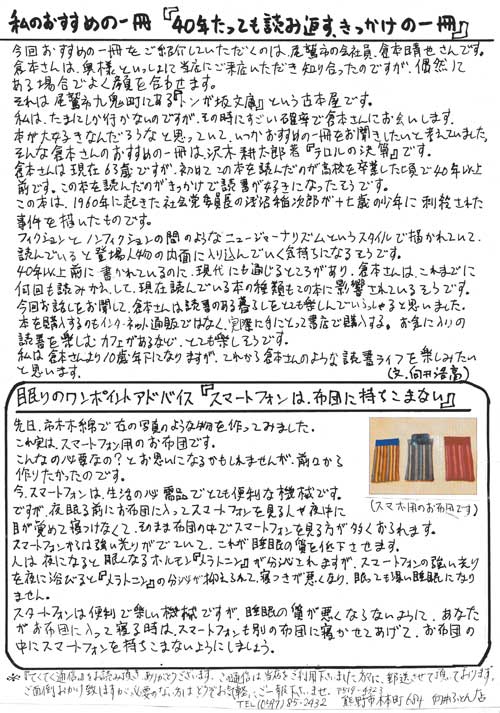 私のおすすめの一冊『40年たっても読み返す、きっかけの一冊』
今回おすすめの一冊をご紹介していただくのは、尾鷲市の会社員、倉本晴也さんです。
倉本さんは、奥様といっしょに当店にご来店いただき知り合ったのですが、偶然に
ある場所でよく顔を合わせます。
それは尾鷲市九鬼町にある『トンガ坂文庫』という古本屋です。
私は、たまにしか行かないのですが、その時にすごい確率で倉本さんにお会いします。
本が大好きなんだろうなと思っていて、いつかおすすめの一冊をお聞きしたいと考えていました。
そんな倉本さんのおすすめの一冊は、沢木耕太郎著『テロルの決算』です。
倉本さんは現在63歳ですが、初めてこの本を読んだのが高校を卒業した頃で40年以上
前です。この本を読んだのがきっかけで読書が好きになったそうです。
この本は、1960年に起きた社会党委員長の浅沼稲次郎が十七歳の少年に刺殺された
事件を描いたものです。
フィクションとノンフィクションの間のようなニュージャーナリズムというスタイルで描かれていて、
読んでいると登場人物の内面に入り込んでいく気持ちになるそうです。
40年以上前に書かれているのに、現代にも通じるところがあり、倉本さんは、これまでに
何回も読みかえして、現在読んでいる本の種類もこの本に影響されているそうです。
今回お話しをお聞きして、倉本さんは読書のある暮らしをとても楽しんでいらっしゃると思いました。
本を購入するのもインターネット通販ではなく、実際に手にとって書店で購入する。お気に入りの
読書を楽しむカフェがあるなど、とても楽しそうです。
私は倉本さんより10歳年下になりますが、これから倉本さんのような読書ライフを楽しみたい
と思います。
(文、向井浩高)
眠りのワンポイントアドバイス『スマートフォンは、布団に持ちこまない』
先日、市木木綿で右の写真のような物を作ってみました。
これ実は、スマートフォン用のお布団です。
こんなの必要なの?とお思いになるかもしれませんが、前々から
作りたかったのです。
今、スマートフォンは、生活の必需品でとても便利な機械です。
ですが、夜眠る前にお布団に入ってスマートフォンを見る人や夜中に
目が覚めて寝つけなくて、そのまま布団の中でスマートフォンを見る方が多くおられます。
スマートフォンからは強い光りがでていて、これが睡眠の質を低下させます。
人は夜になると眠くなるホルモン『メラトニン』が分泌されますが、スマートフォンの強い光り
を夜に浴びると『メラトニン』の分泌が抑えられて、寝つきが悪くなり、眠っても浅い睡眠になり
ません。
スマートフォンは便利で楽しい機械ですが、睡眠の質が悪くならないように、あなた
がお布団に入って寝る時は、スマートフォンも別の布団に寝かせてあげて、お布団の
中にスマートフォンを持ちこまないようにしましょう。
(スマホ用のお布団です)
※『てくてく通信』をお読み頂き、ありがとうございます。この通信は当店をご利用下さいました方に、郵送させて頂いております。
ご面倒おかけ致しますが、必要のない方はどうぞお気軽にご一報下さいませ。〒519-4323
TEL(0597)85-2432 熊野市木本町684 向井ふとん店